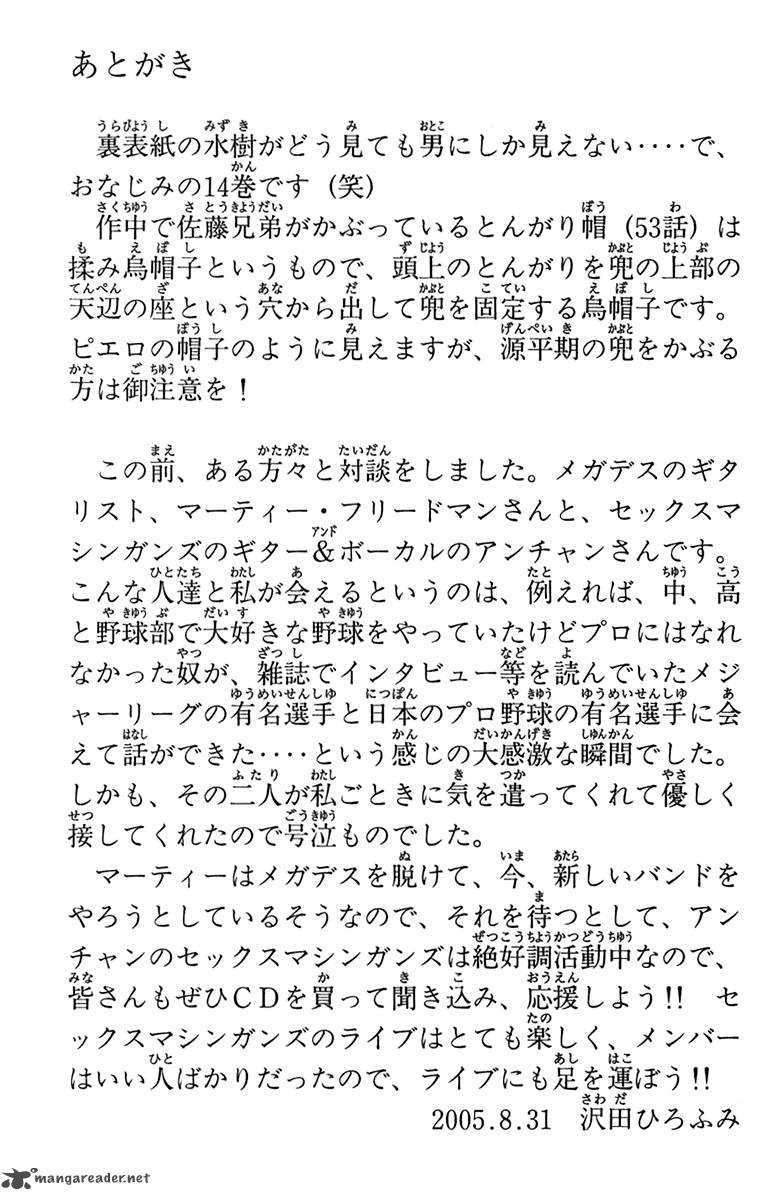 あとがき
裏表紙の水樹がどう見ても男にしか見えない‥‥で、
おなじみの14巻です（笑）
作中で佐藤兄弟がかぶっているとんがり帽（53話）は
揉み烏帽子というもので、頭上のとんがりを兜の上部の
天辺の座という穴から出して兜を固定する烏帽子です。
ピエロの帽子のように見えますが、源平期の兜をかぶる
方は御注意を！
この前、ある方々と対談をしました。メガデスのギタ
リスト、マーティー・フリードマンさんと、セックスマ
シンガンズのギター&ボーカルのアンチャンさんです。
こんな人達と私が会えるというのは、例えれば、中、高
と野球部で大好きな野球をやっていたけどプロにはなれ
なかった奴が、雑誌でインタビュー等を読んでいたメジ
ャーリーグの有名選手と日本のプロ野球の有名選手に会
えて話ができた‥‥という感じの大感激な瞬間でした。
しかも、その二人が私ごときに気を遣ってくれて優しく
接してくれたので号泣ものでした。
マーティーはメガデスを脱けて、今、新しいバンドを
やろうとしているそうなので、それを待つとして、アン
チャンのセックスマシンガンズは絶好調活動中なので、
皆さんもぜひCDを買って聞き込み、応援しよう!!　セ
ックスマシンガンズのライブはとても楽しく、メンバー
はいい人ばかりだったので、ライブにも足を運ぼう!!
2005.8.31　沢田ひろふみ
mangareader.net